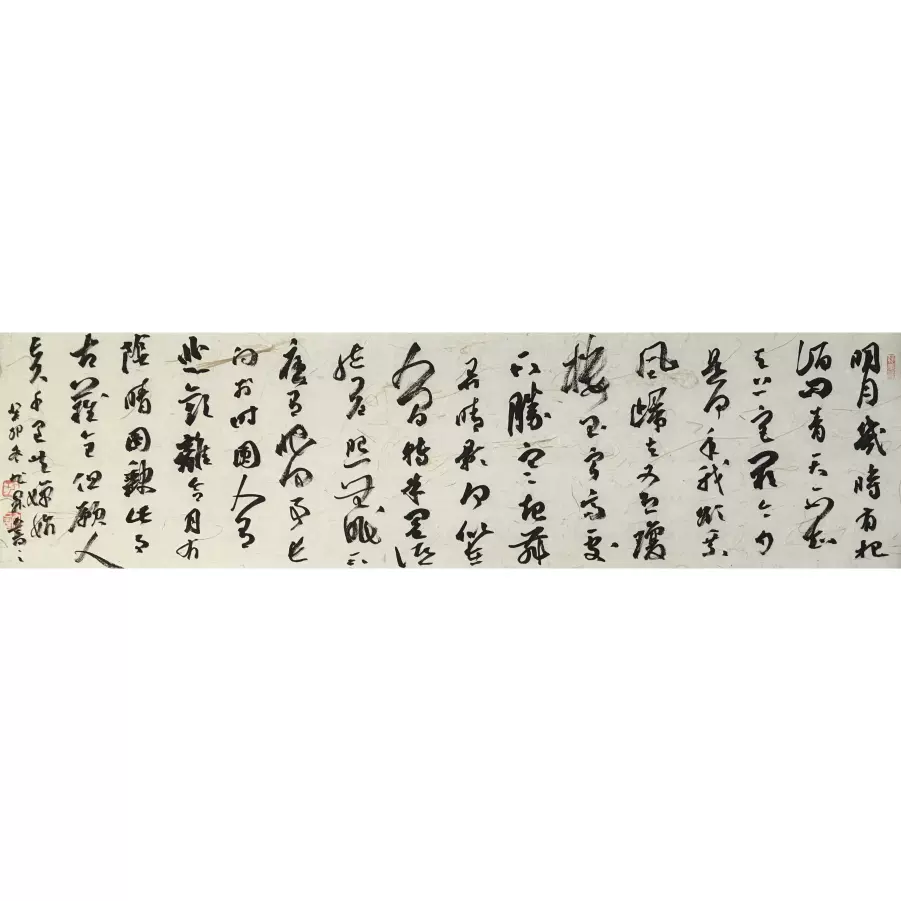 明月幾時有把
酒問青天不知
天上宮闕今夕
是何年我欲乘
風歸去又恐瓊
樓玉宇高處
不勝寒起舞
弄清影何似在
人間轉朱閣低
綺戶照無眠不
應有恨何事長
向別時圓人有
悲歡離合月有
陰晴圓缺此事
古難全但願人
長久千里共嬋娟
癸卯冬書